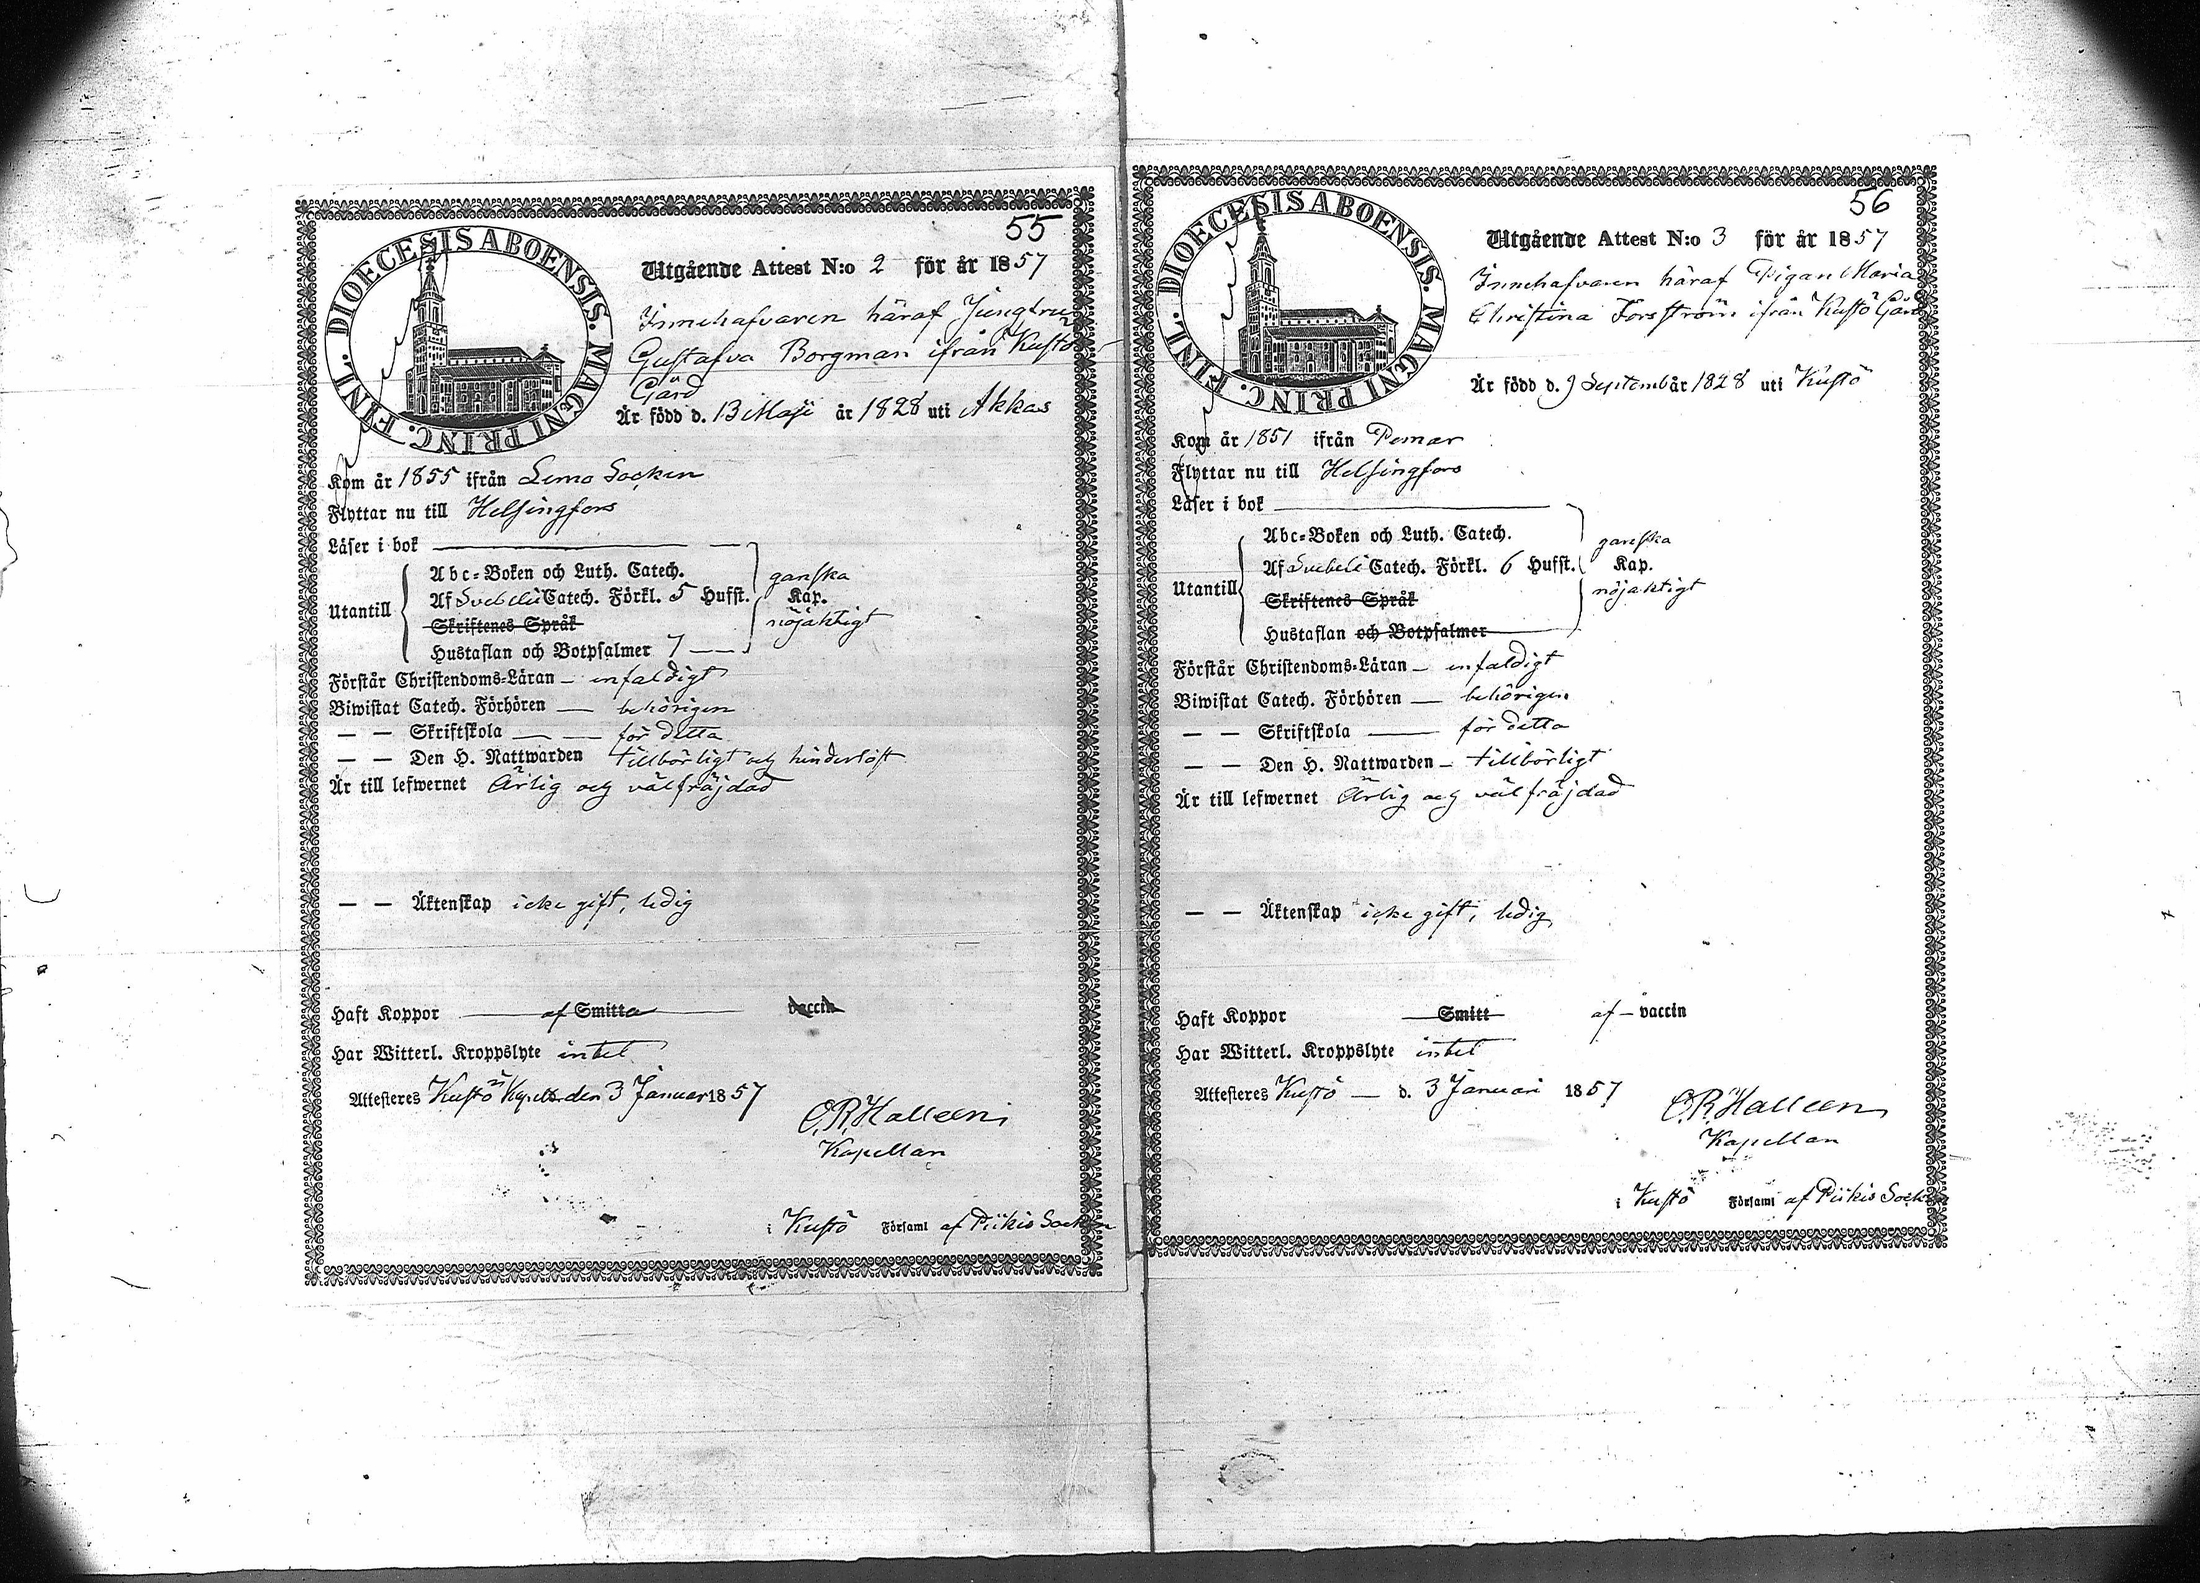 55
DIOECESIS ABOENSIS. MAGNI PRINC. FINL.
Utgående Attest N:o 2 för år 1857
Innehafvaren häraf Jungfrun
Gustafva Borgman ifrån Kustö
Gård
Är född d. 13 Maji år 1828 uti Akkas
Kom år 1855 ifrån Lemo Socken
Flyttar nu till Helsingfors
Läser i bok
Abc-Boken och Luth. Catech. ganska
Utantill Af Svebelii Catech. Förkl. 5 Hufst. Kap.
Skriftenes Språk nöjaktigt
Hustaflan och Botpsalmer 7
Förstår Christendoms-Läran enfaldigt
Biwistat Catech. Förhören behörigen
— — Skriftskola för detta
— — Den H. Nattwarden tillbörligt och hinderlöst
Är till lefwernet Ärlig och välfräjdad
— — Äktenskap icke gift, ledig
Haft Koppor af Smitta vaccin
Har Witterl. Kroppslyte intet
Attesteras Kustö den 3 Januar 1857
C. R. Halleen
Kapellan
i Kustö Församl af Piikis Socken
56
DIOECESIS ABOENSIS. MAGNI PRINC. FINL.
Utgående Attest N:o 3 för år 1857
Innehafvaren häraf Pigan Maria
Christina Forsström ifrån Kustö Gård
Är född d. 9 Septemb år 1828 uti Kustö
Kom år 1851 ifrån Pemar
Flyttar nu till Helsingfors
Läser i bok
Abc-Boken och Luth. Catech. ganska
Utantill Af Svebelii Catech. Förkl. 6 Hufst. Kap.
Skriftenes Språk nöjaktigt
Hustaflan och Botpsalmer
Förstår Christendoms-Läran enfaldigt
Biwistat Catech. Förhören behörigen
— — Skriftskola för detta
— — Den H. Nattwarden tillbörligt
Är till lefwernet Ärlig och välfräjdad
— — Äktenskap icke gift, ledig
Haft Koppor Smitt af vaccin
Har Witterl. Kroppslyte intet
Attesteras Kustö d. 3 Januari 1857
C. R. Halleen
Kapellan
i Kustö Församl af Piikis Socken